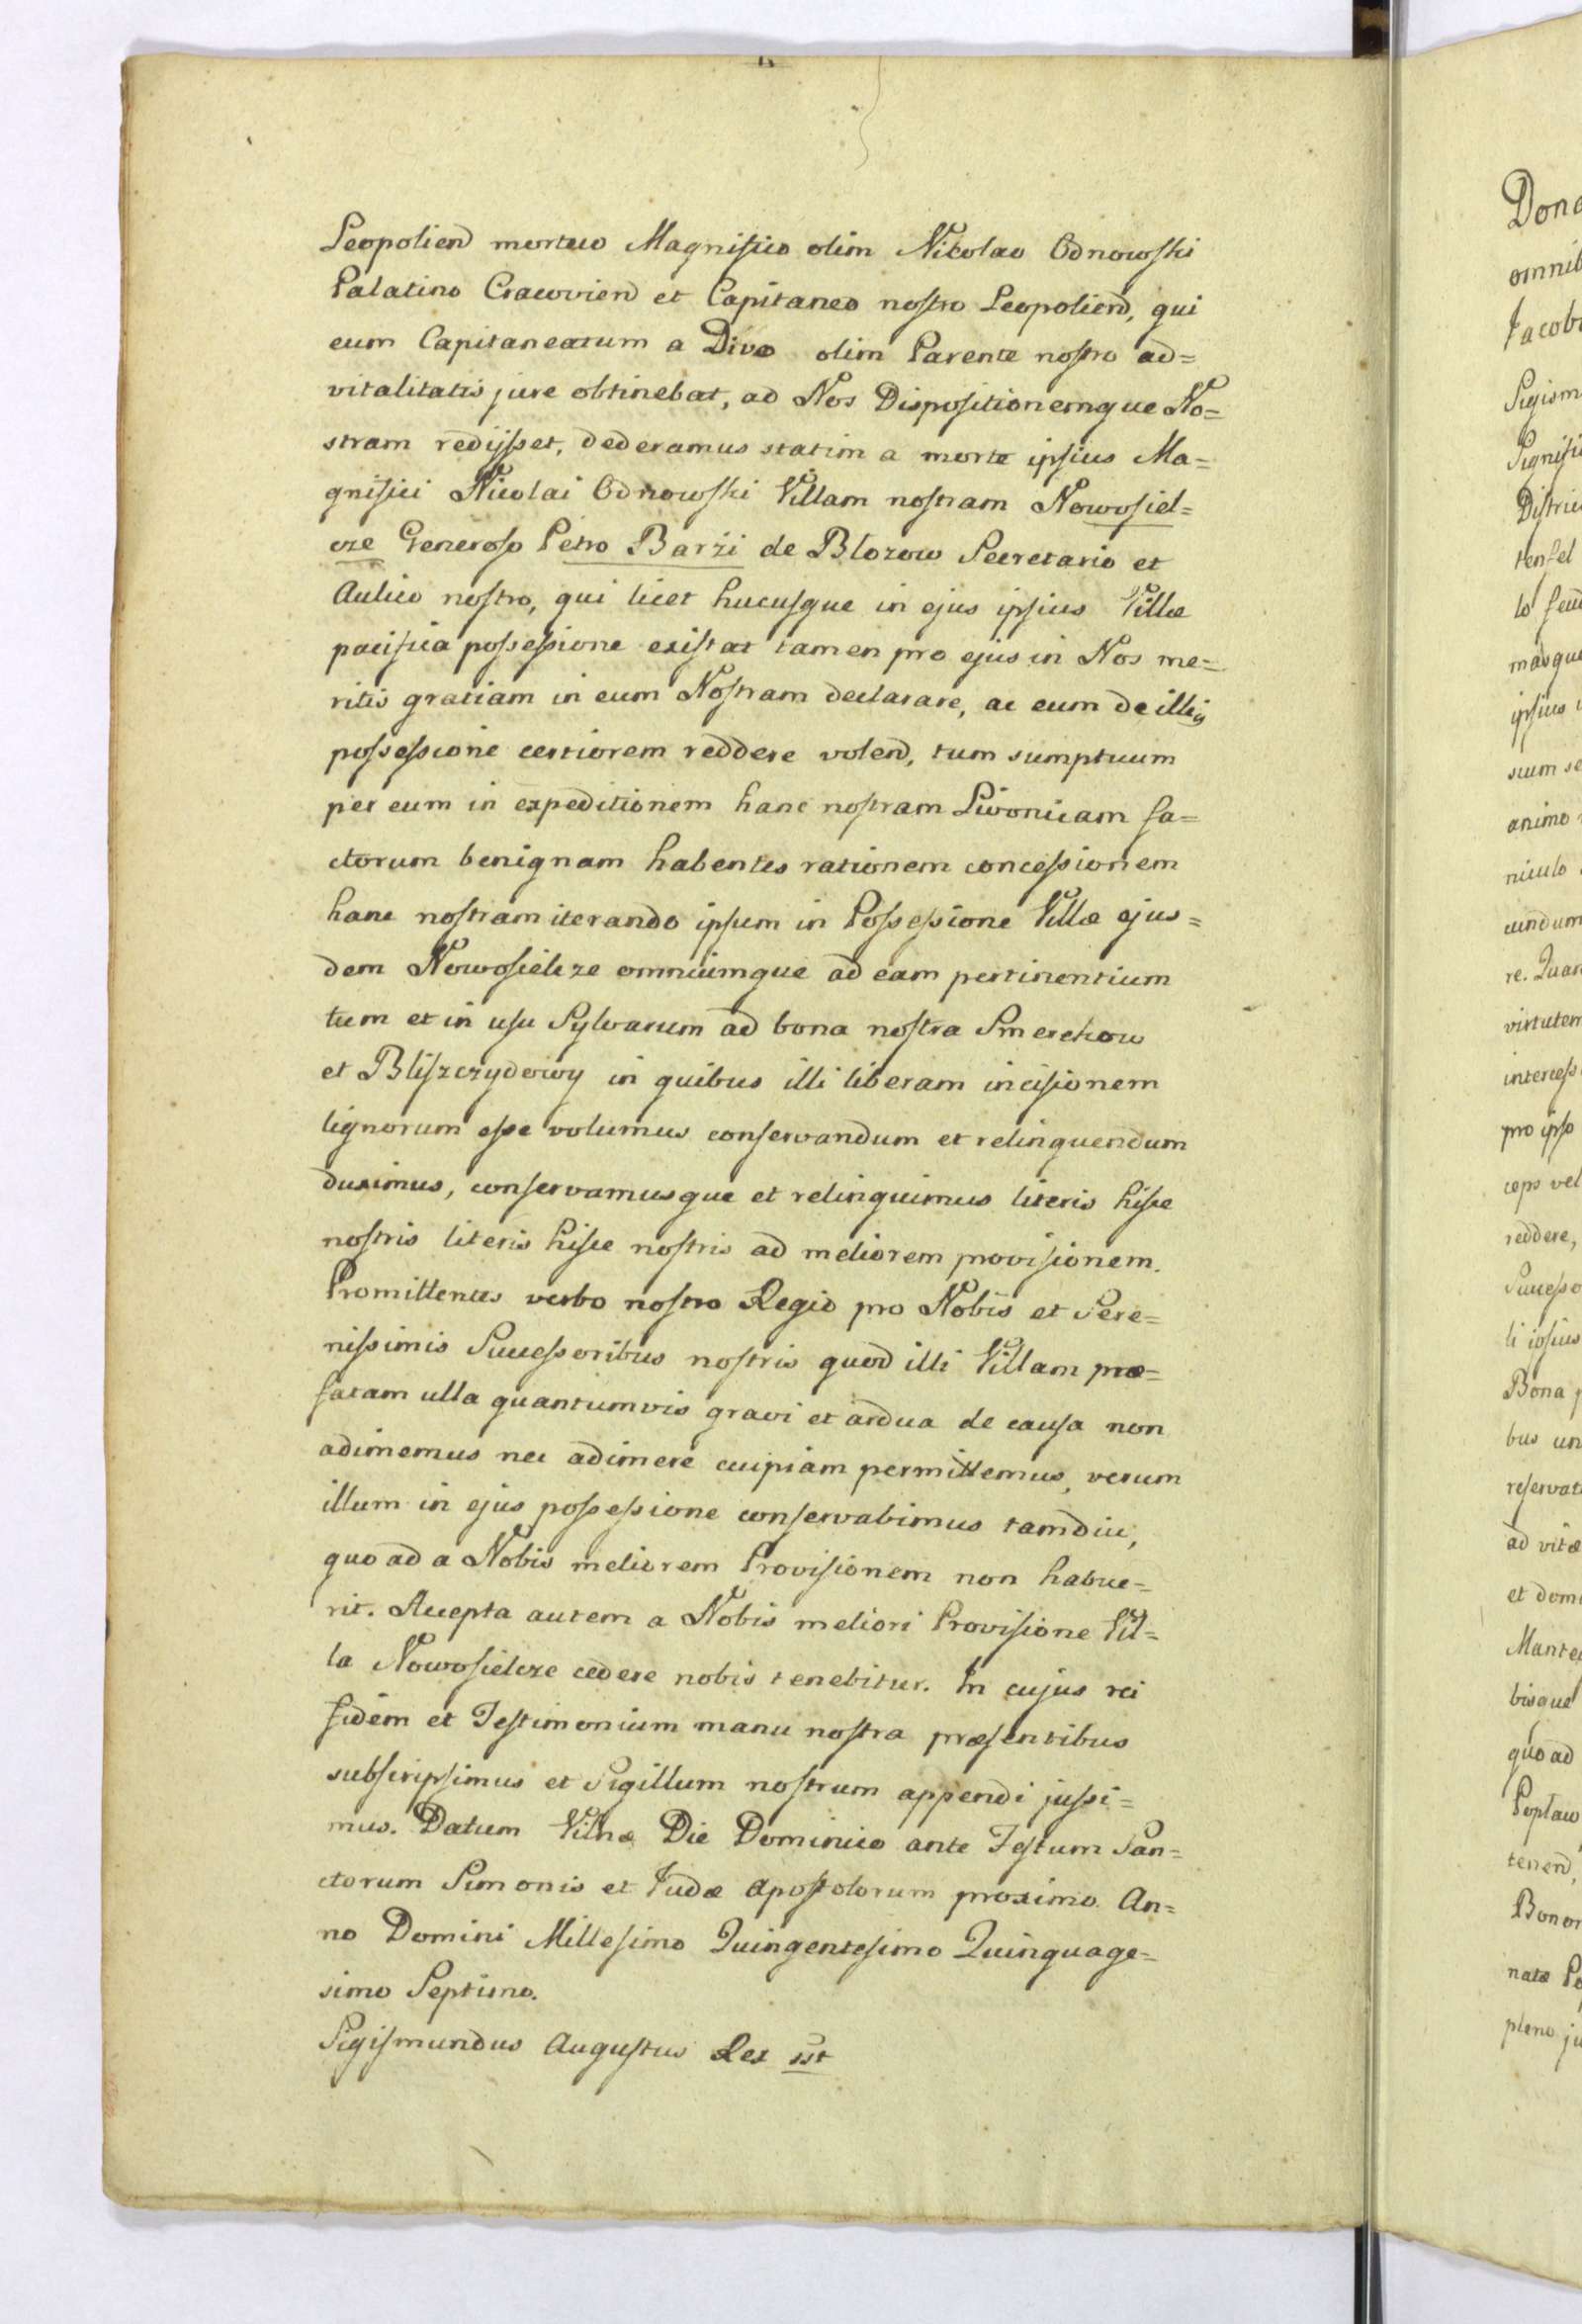 Leopoliend mortuo Magnifico olim Nicolao Odnowski
Palatino Cracoviend et Capitaneo nostro Leopoliend, qui
eum Capitaneatum a Divo olim Parente nostro ad=
vitalitatis jure obtinebat, ad Nos Dispositionemque No=
stram redijsset, dederamus statim a morte ipsius Ma=
gnifici Nicolai Odnowski Villam nostram Nowosiel=
cze Generoso Petro Barzi de Blozow Secretario et
Aulico nostro, qui licet hucusque in ejus ipsius Villæ
pacifica possessione existat tamen pro ejus in Nos me=
ritis gratiam in eum Nostram declarare, ac eum de illis
possessione certiorem reddere volend, tum sumptuum
per eum in expeditionem hanc nostram Livonicam fa=
ctorum benignam habentes rationem concessionem
hanc nostram iterando ipsum in Possessione Villæ ejus=
dem Nowosielcze omniumque ad eam pertinentium
tum et in usu Sylvarum ad bona nostra Smerekow
et Bliszczydowy in quibus illi liberam incisionem
lignorum esse volumus conservandum et relinquendum
duximus, conservamusque et relinquimus literis hisce
nostris literis hisce nostris ad meliorem provisionem.
Promittentes verbo nostro Regio pro Nobis et Sere=
nissimis Successoribus nostris quod illi Villam præ=
fatam ulla quantumvis gravi et ardua de causa non
adimemus nec adimere cuipiam permittemus, verum
illum in ejus possessione conservabimus tamdiu,
quo ad a Nobis meliorem Provisionem non habue=
rit. Accepta autem a Nobis meliori Provisione Vil=
la Nowosielcze cedere nobis tenebitur. In cujus rei
fidem et Testimonium manu nostra præsentibus
subscripsimus et Sigillum nostrum appendi jussi=
mus. Datum Vilnæ Die Dominico ante Festum San=
ctorum Simonis et Judæ Apostolorum proximo. An=
no Domini Millesimo Quingentesimo Quinquage=
simo Septimo.
Sigismundus Augustus Rex sst
Dono
omnib
Jacob
Sigism
Signifi
Distric
tenfel
lo feud
masque
ipsius
suum se
animo
niculo
cundum
re. Quan
virtutem
intercess
pro ipso
ceps vel
reddere,
Successo
li ipsius
Bona
bus un
reservat
ad vitæ
et domi
Mante
bisque
quo ad
tenend,
Bonor
natæ Po
pleno ju